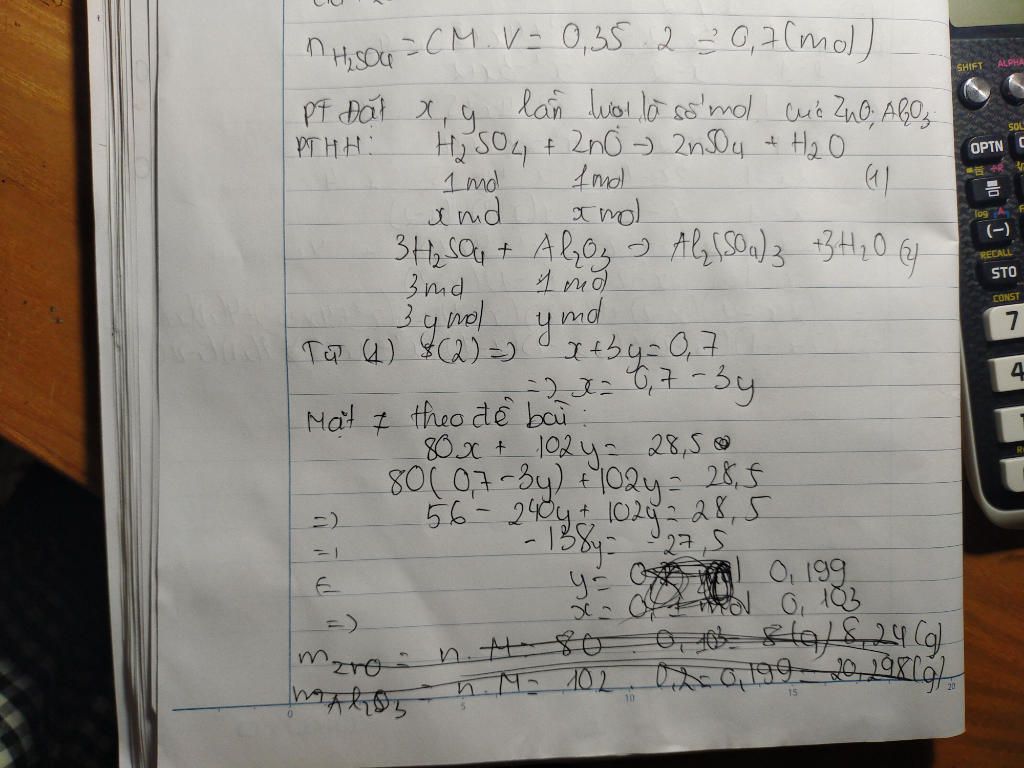 n H₂SO₄ = CM.V = 0,35 . 2 = 0,7 (mol)
PT Đặt x, y lần lượt là số mol của ZnO; Al₂O₃.
PTHH: H₂SO₄ + ZnO → ZnSO₄ + H₂O
1 mol 1 mol (1)
x mol x mol
3H₂SO₄ + Al₂O₃ → Al₂(SO₄)₃ + 3H₂O (2)
3 mol 1 mol
3y mol y mol
Từ (1) $(2) => x+3y = 0,7
=> x = 0,7 - 3y
Mặt ≠ theo đề bài:
80x + 102y = 28,5
80(0,7-3y) + 102y = 28,5
=> 56 - 240y + 102y = 28,5
=> -138y = -27,5
y = 0,199
=> x = 0,103
m ZnO = n.M = 80 . 0,103 = 8(g) 8,24(g)
m Al₂O₃ = n.M = 102 . 0,2 = 0,199 = 20,298(g)
0 5 10 15 20
SHIFT ALPHA
OPTN
log
(-)
RECALL
STO
CONST
7
4
1